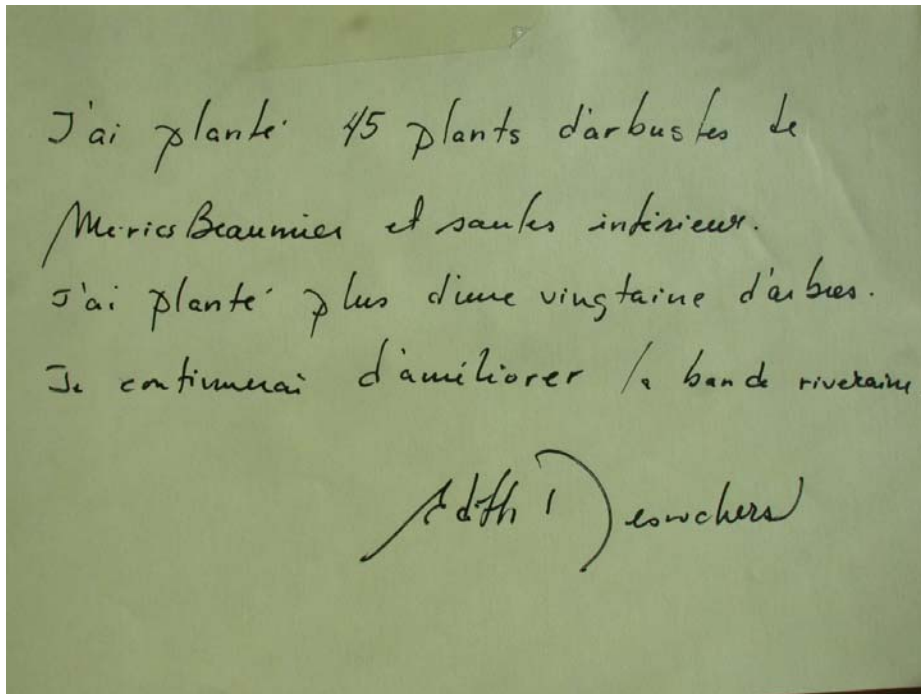 J'ai planté 45 plants d'arbustes de
Myrics Beaumier et saules intérieur.
J'ai planté plus d'une vingtaine d'arbres.
Je continuerai d'améliorer la bande riveraine
Edith Desrochers